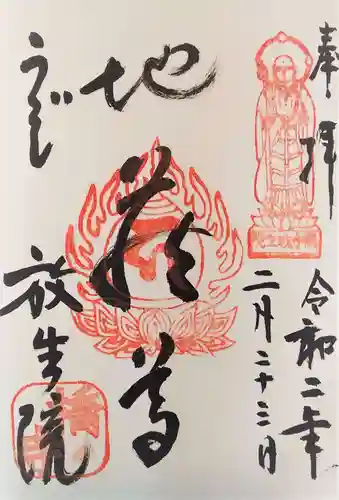 奉拝
令和二年
二月二十三日
地蔵尊
うじ
放生院